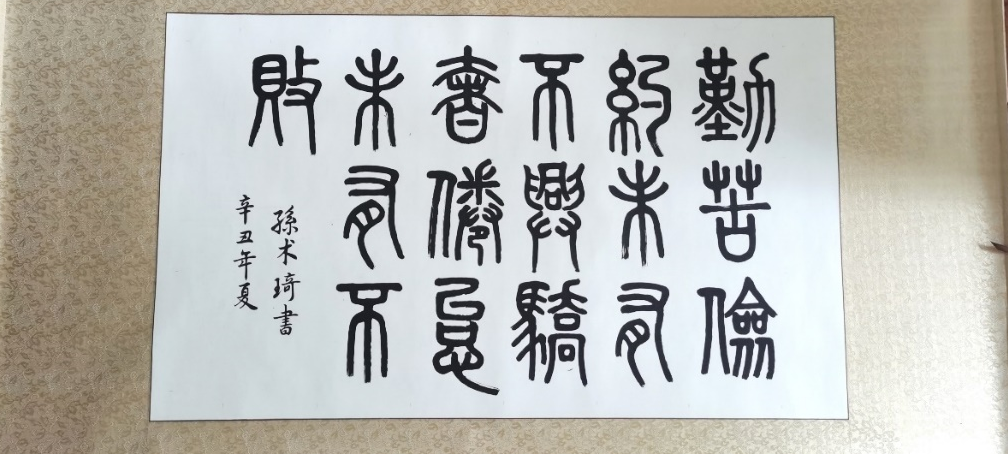 勤苦儉
約未有
不興驕
奢倦怠
未有不
敗
孫术琦書
辛丑年夏